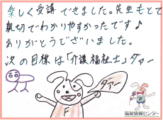 楽しく受講できました。先生もとても
親切でわかりやすかったです♪
ありがとうございました。
次の目標は「介護福祉士」ダァー
ダァー
F